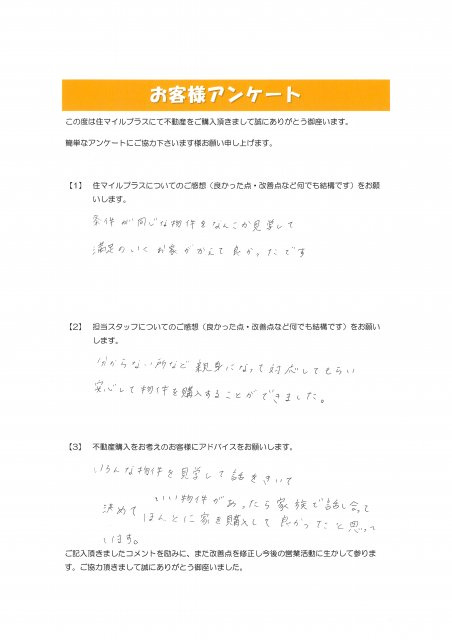 お客様アンケート
この度は住マイルプラスにて不動産をご購入頂きまして誠にありがとう御座います。
簡単なアンケートにご協力下さいます様お願い申し上げます。
【1】 住マイルプラスについてのご感想（良かった点・改善点など何でも結構です）をお願
いします。
条件が同じな物件をなんこか見学して
満足のいくお家がかえて良かったです
【2】 担当スタッフについてのご感想（良かった点・改善点など何でも結構です）をお願い
します。
分からない所など親身になって対応してもらい
安心して物件を購入することができました。
【3】 不動産購入をお考えのお客様にアドバイスをお願いします。
いろんな物件を見学して話をきいて
いい物件があったら家族で話し合って
決めて ほんとに家を購入して良かったと思って
います。
ご記入頂きましたコメントを励みに、また改善点を修正し今後の営業活動に生かして参りま
す。ご協力頂きまして誠にありがとう御座いました。